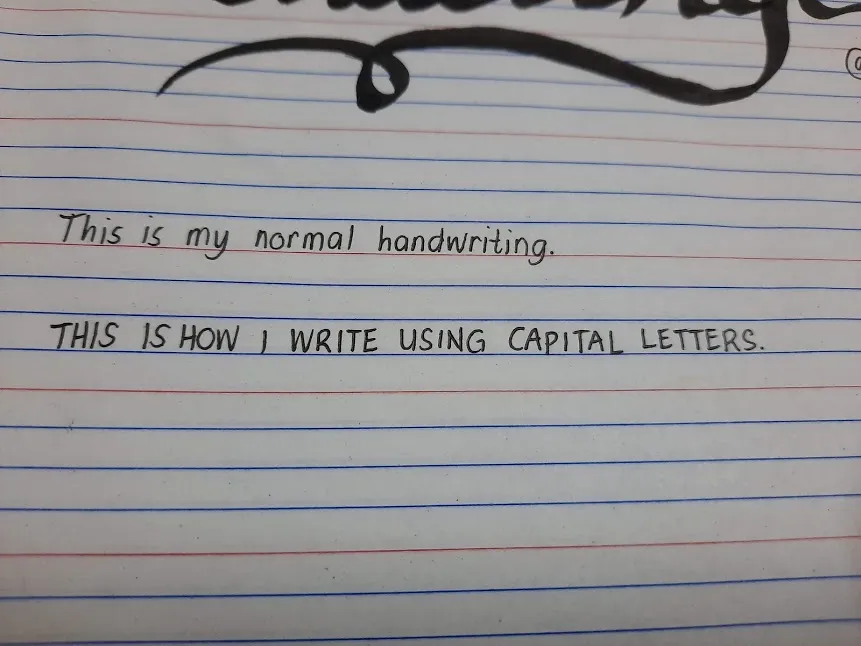 This is my normal handwriting.
THIS IS HOW I WRITE USING CAPITAL LETTERS.